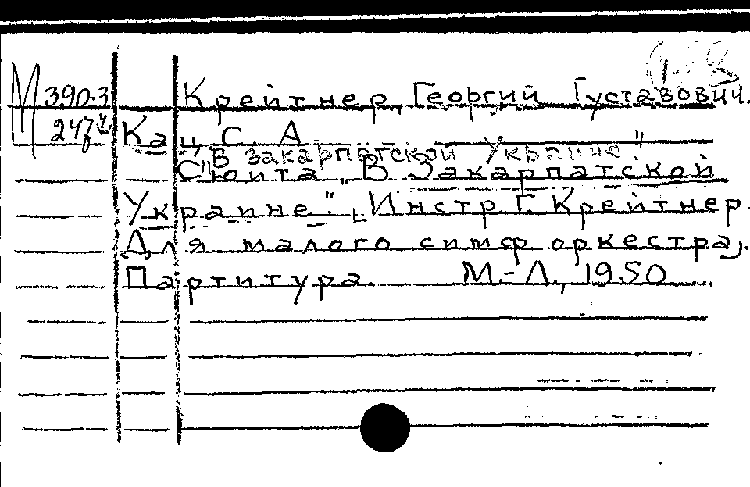 М 390.3 Крейтнер, Георгий Густавович.
Кац, С. А
"В Закарпатской Украине"
Сюита "В Закарпатской
Украине". Инстр Г. Крейтнер.
Для малого симф оркестра.
Партитура. М.-Л., 1950